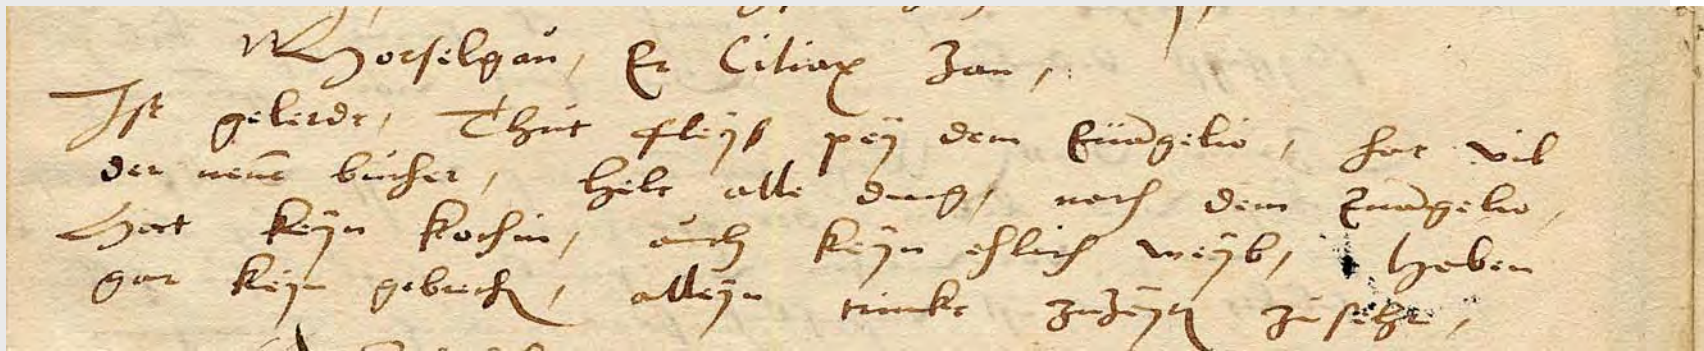 Horselgau, Er Ciliax Zan,
Ist gelerdt, Thut fleÿß peÿ dem Euangelio, hat vil
der neuen bucher, helt alle ding, nach dem Euangelio,
Hat keÿn kochin, auch keÿn ehlich weÿb, Haben
gar keÿn gebrech, alleÿn trinkt zuzeÿt zu sehr,